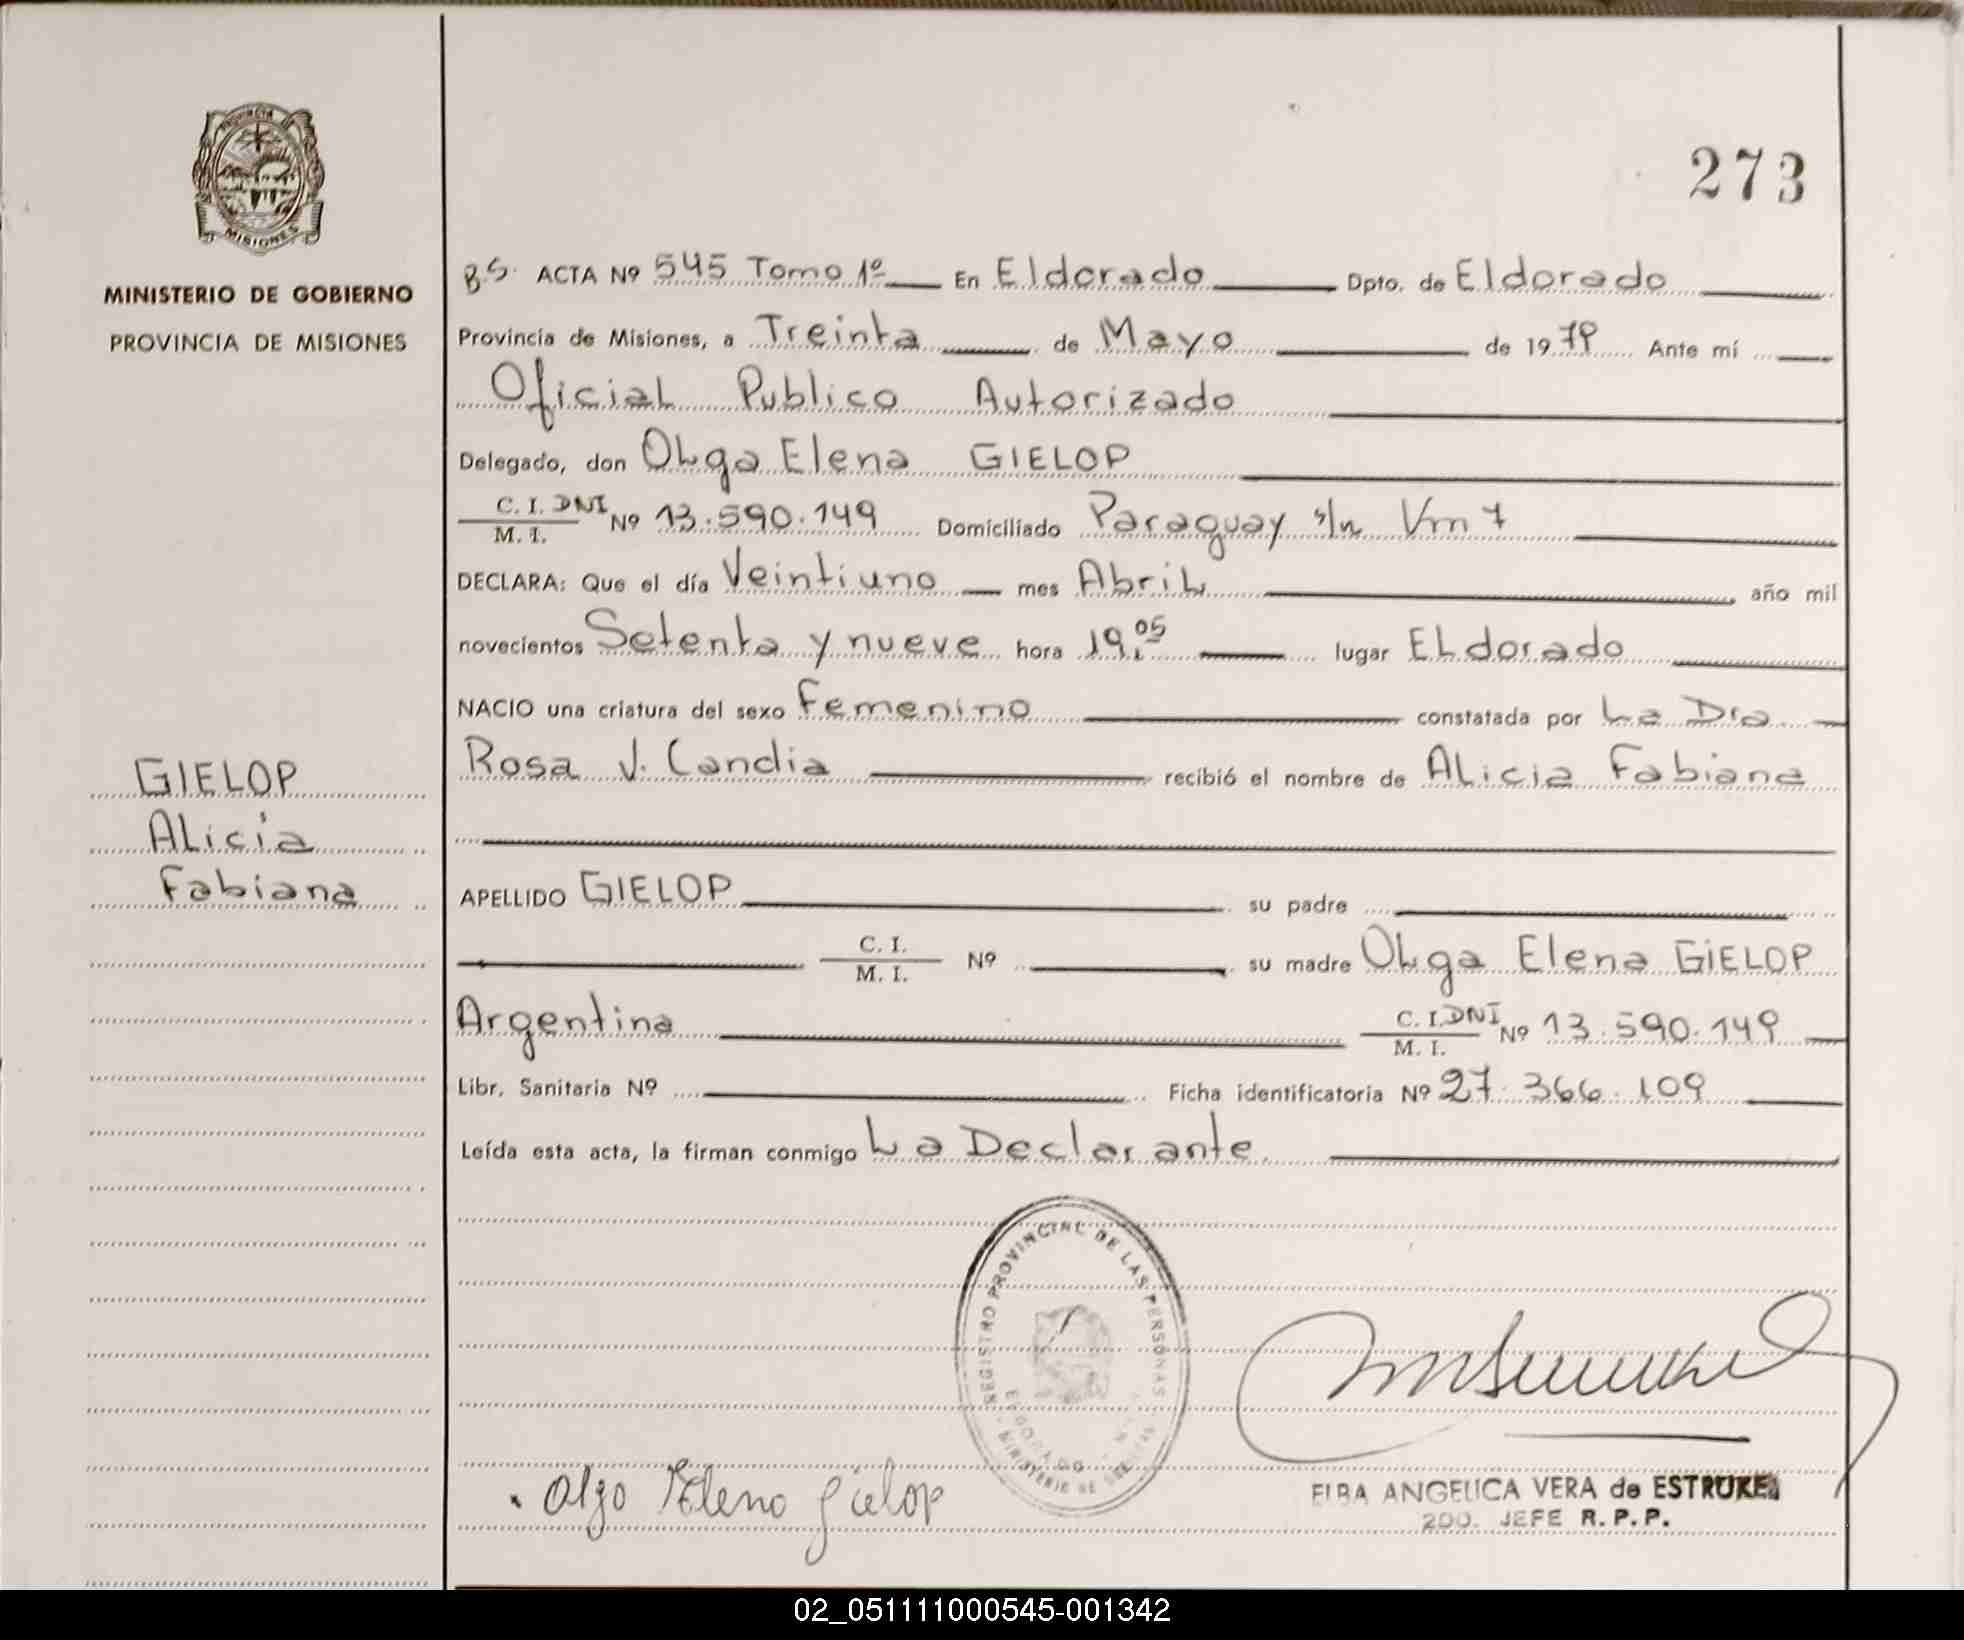 PROVINCIA DE
MISIONES
MINISTERIO DE GOBIERNO
PROVINCIA DE MISIONES
GIELOP
Alicia
Fabiana
273
B.S. ACTA Nº 545 Tomo 1º En Eldorado Dpto. de Eldorado
Provincia de Misiones, a Treinta de Mayo de 1979 Ante mí
Oficial Publico Autorizado
Delegado, don Olga Elena GIELOP
C. I. DNI
M. I. Nº 13.590.149 Domiciliado Paraguay s/n
DECLARA: Que el día Veintiuno mes Abril año mil
novecientos Setenta y nueve hora 19.05 lugar Eldorado
NACIO una criatura del sexo femenino constatada por La Dra
Rosa V. Candia recibió el nombre de Alicia Fabiana
APELLIDO GIELOP su padre
C. I.
M. I. Nº su madre Olga Elena GIELOP
Argentina C. I. DNI
M. I. Nº 13.590.149
Libr. Sanitaria Nº Ficha identificatoria Nº 27.366.109
Leída esta acta, la firman conmigo La Declarante
REGISTRO PROVINCIAL DE LAS PERSONAS
Olga Elena Gielop
ELBA ANGELICA VERA de ESTRUKEL
2DO. JEFE R.P.P.
02_051111000545-001342